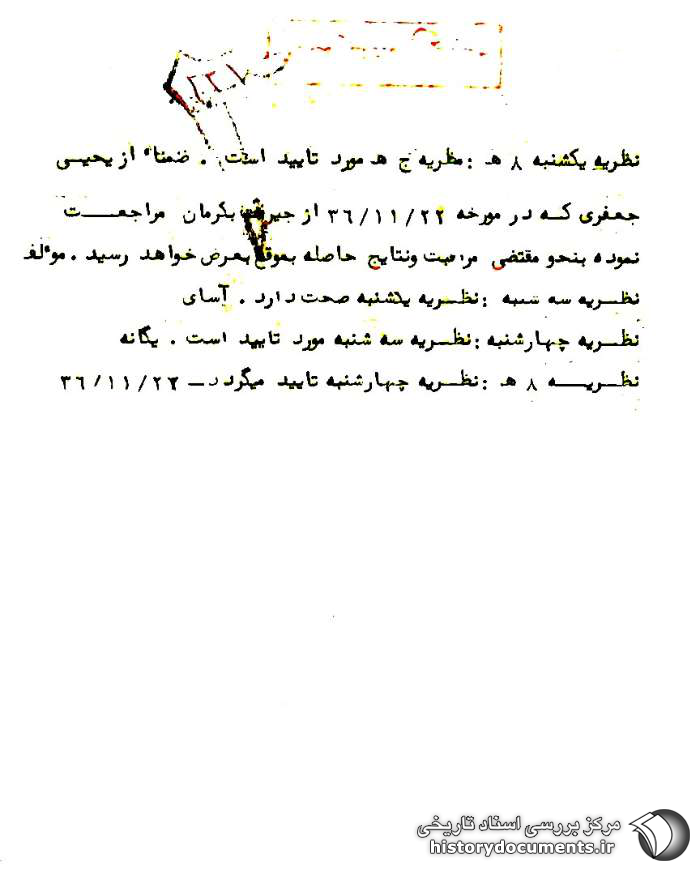 ۲۳۱
نظریه یکشنبه ۸ هـ : نظریه ج هـ مورد تایید است . ضمنا" از یحیی
جعفری که در مورخه ۳۶/۱۱/۲۲ از جیرفت بکرمان مراجعت
نموده بنحو مقتضی مراقبت ونتایج حاصله بموقع بعرض خواهد رسید . موءلف
نظریه سه شنبه : نظریه یکشنبه صحت دارد . آسای
نظریه چهارشنبه : نظریه سه شنبه مورد تایید است . یگانه
نظریه ۸ هـ : نظریه چهارشنبه تایید میگردد ـ ۳۶/۱۱/۲۲
مرکز بررسی اسناد تاریخی
historydocuments.ir